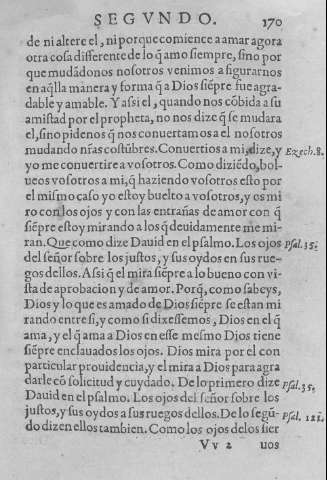 SEGVNDO. 170
de ni altere el, ni porque comience a amar agora
otra cosa differente de lo q̃ amo siempre, sino por
que mudãdonos nosotros venimos a figurarnos
en aq̃lla manera y forma q̃ a Dios siẽpre fue agra-
dable y amable. Y assi el, quando nos cõbida a su
amistad por el propheta, no nos dize q̃ se mudara
el, sino pidenos q̃ nos conuertamos a el nosotros
mudando nr̃as costũbres. Conuertios a mi, dize, y Ezech. 8.
yo me conuertire a vosotros. Como diziẽdo, bol-
ueos vosotros a mi, q̃ haziendo vosotros esto por
el mismo caso yo estoy buelto a vosotros, y os mi
ro con los ojos y con las entrañas de amor con q̃
siẽpre estoy mirando a los q̃ deuidamente me mi-
ran. Que como dize Dauid en el psalmo. Los ojos Psal. 35.
del señor sobre los justos, y sus oydos en sus rue-
gos dellos. Assi q̃ el mira siẽpre a lo bueno con vi-
sta de aprobacion y de amor. Porq̃, como sabeys,
Dios y lo que es amado de Dios siẽpre se estan mi
rando entre si, y como si dixessemos, Dios en el q̃
ama, y el q̃ ama a Dios en esse mesmo Dios tiene
siẽpre enclauados los ojos. Dios mira por el con
particular prouidencia, y el mira a Dios para agra
darle cõ solicitud y cuydado. De lo primero dize Psal. 35.
Dauid en el psalmo. Los ojos del señor sobre los
justos, y sus oydos a sus ruegos dellos. De lo segũ-
do dizen ellos tambien. Como los ojos delos sier Psal. 121.
Vv 2 uos